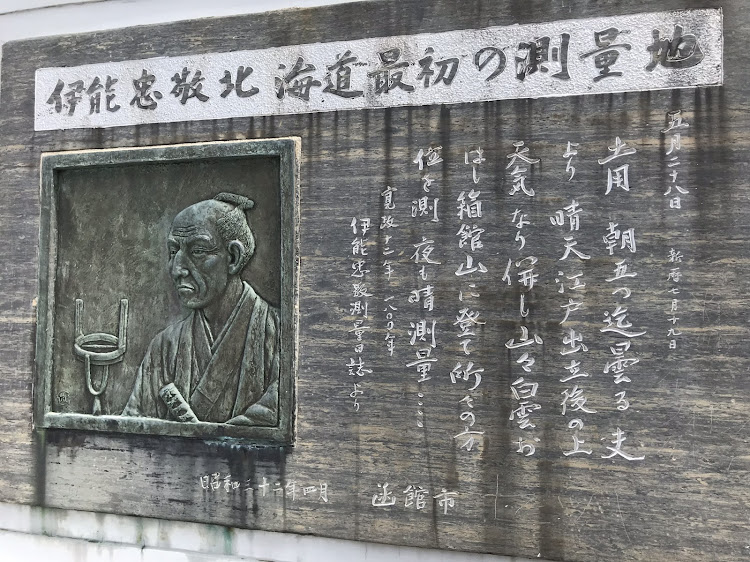 伊能忠敬北海道最初の測量地
五月二十八日 新暦七月十九日
土用 朝五つ迄曇る 夫
より 晴天江戸出立後の上
天気なり 併し山々白雲お
はし箱館山に登て所々の方
位を測 夜も晴測量
寛政十二年 一八〇〇年
伊能忠敬測量日誌より
昭和三十二年四月 函館市